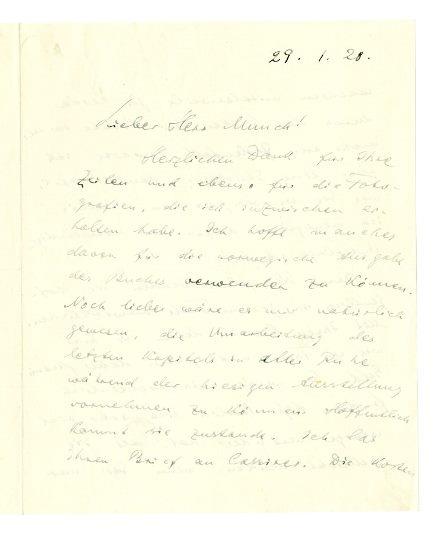 29. 1. 20.
Lieber Herr Munch!
Herzlichen Dank für Ihre
Zeilen und ebenso für die Foto-
grafien, die ich inzwischen er-
halten habe. Ich hoffe manches
davon für die norwegische Ausgabe
des Buches verwenden zu können.
Noch lieber wäre es mir natürlich
gewesen, die Umarbeitung des
letzten Kapitels in aller Ruhe
während der hiesigen Ausstellung
vornehmen zu können. Hoffentlich
kommt sie zustande. Ich las
Ihren Brief an Cassirer. Die Kosten